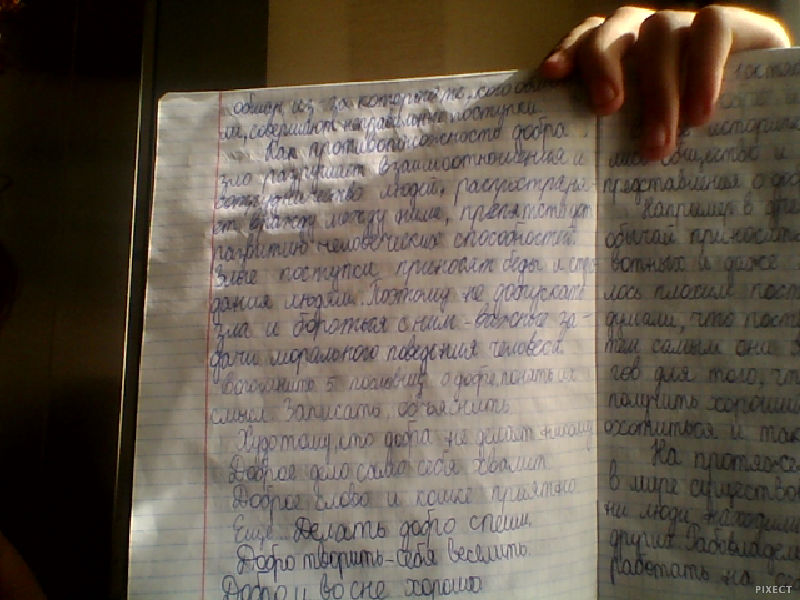 обман, из-за которых те, кого обману-
ли, совершают неправильные поступки.
Как противоположность добра
зло разрушает взаимоотношения и
сотрудничество людей, распространя-
ет вражду между ними, препятствует
развитию человеческих способностей.
Злые поступки приносят беды и стра-
дания людям. Поэтому не допускать
зла и бороться с ним - важные за-
дачи морального поведения человека.
Вспомнить 5 пословиц о добре, понять их
смысл. Записать, объяснить.
Худо тому, кто добра не делает никому
Доброе дело само себя хвалит
Доброе слово и кошке приятно
Ещё... Делать добро спеши
Добро творить-себя веселить.
Добро и во сне хорошо
историче
общество и
представления о доб
Например в дре
обычай приносить
вотных и даже
лось плохим пост
думали, что пост
тем самым они
гов для того, чт
получить хороший
охотиться и так
На протяже
в мире существов
ни люди находили
других. Рабовладел
работать на се
PIXECT